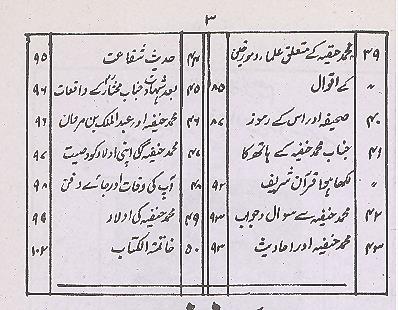 ۳
۳۹ محمد حنفیہ کے متعلق علماء و مورخین
〃 کے اقوال ۸۵
۴۰ صحیفہ اور اس کے رموز ۸۷
۴۱ جناب محمد حنفیہ کے ہاتھ کا
〃 لکھا ہوا قرآن شریف ۹۲
۴۲ محمد حنفیہ سے سوال و جواب ۹۳
۴۳ محمد حنفیہ اور احادیث ۹۳
۴۴ حدیث شفاعت ۹۵
۴۵ بعد شہادت جناب مختار کے واقعات ۹۶
۴۶ محمد حنفیہ اور عبدالملک بن مروان ۹۶
۴۷ محمد حنفیہ کی اپنی اولاد کو وصیت ۹۷
۴۸ آپ کی وفات اور جائے دفن ۹۸
۴۹ محمد حنفیہ کی اولاد ۹۹
۵۰ خاتمۃ الکتاب ۱۰۲